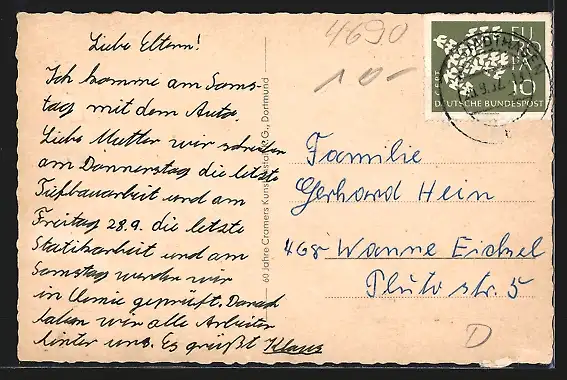 Liebe Eltern!
Ich komme am Sams-
tag mit dem Auto.
Liebe Mutter wir schreiben
am Donnerstag die letzte
Tiefbauarbeit und am
Freitag 28.9. die letzte
Statikarbeit und am
Samstag werden wir
in Chemie geprüft. Danach
haben wir alle Arbeiten
hinter uns. Es grüßt Klaus
60 Jahre Cramers Kunstanstalt KG., Dortmund
4690
10-
EUROPA
CEPT
10
DEUTSCHE BUNDESPOST
STADTHAGEN
Familie
Gerhard Hein
468 Wanne Eickel
Pluto str. 5
D